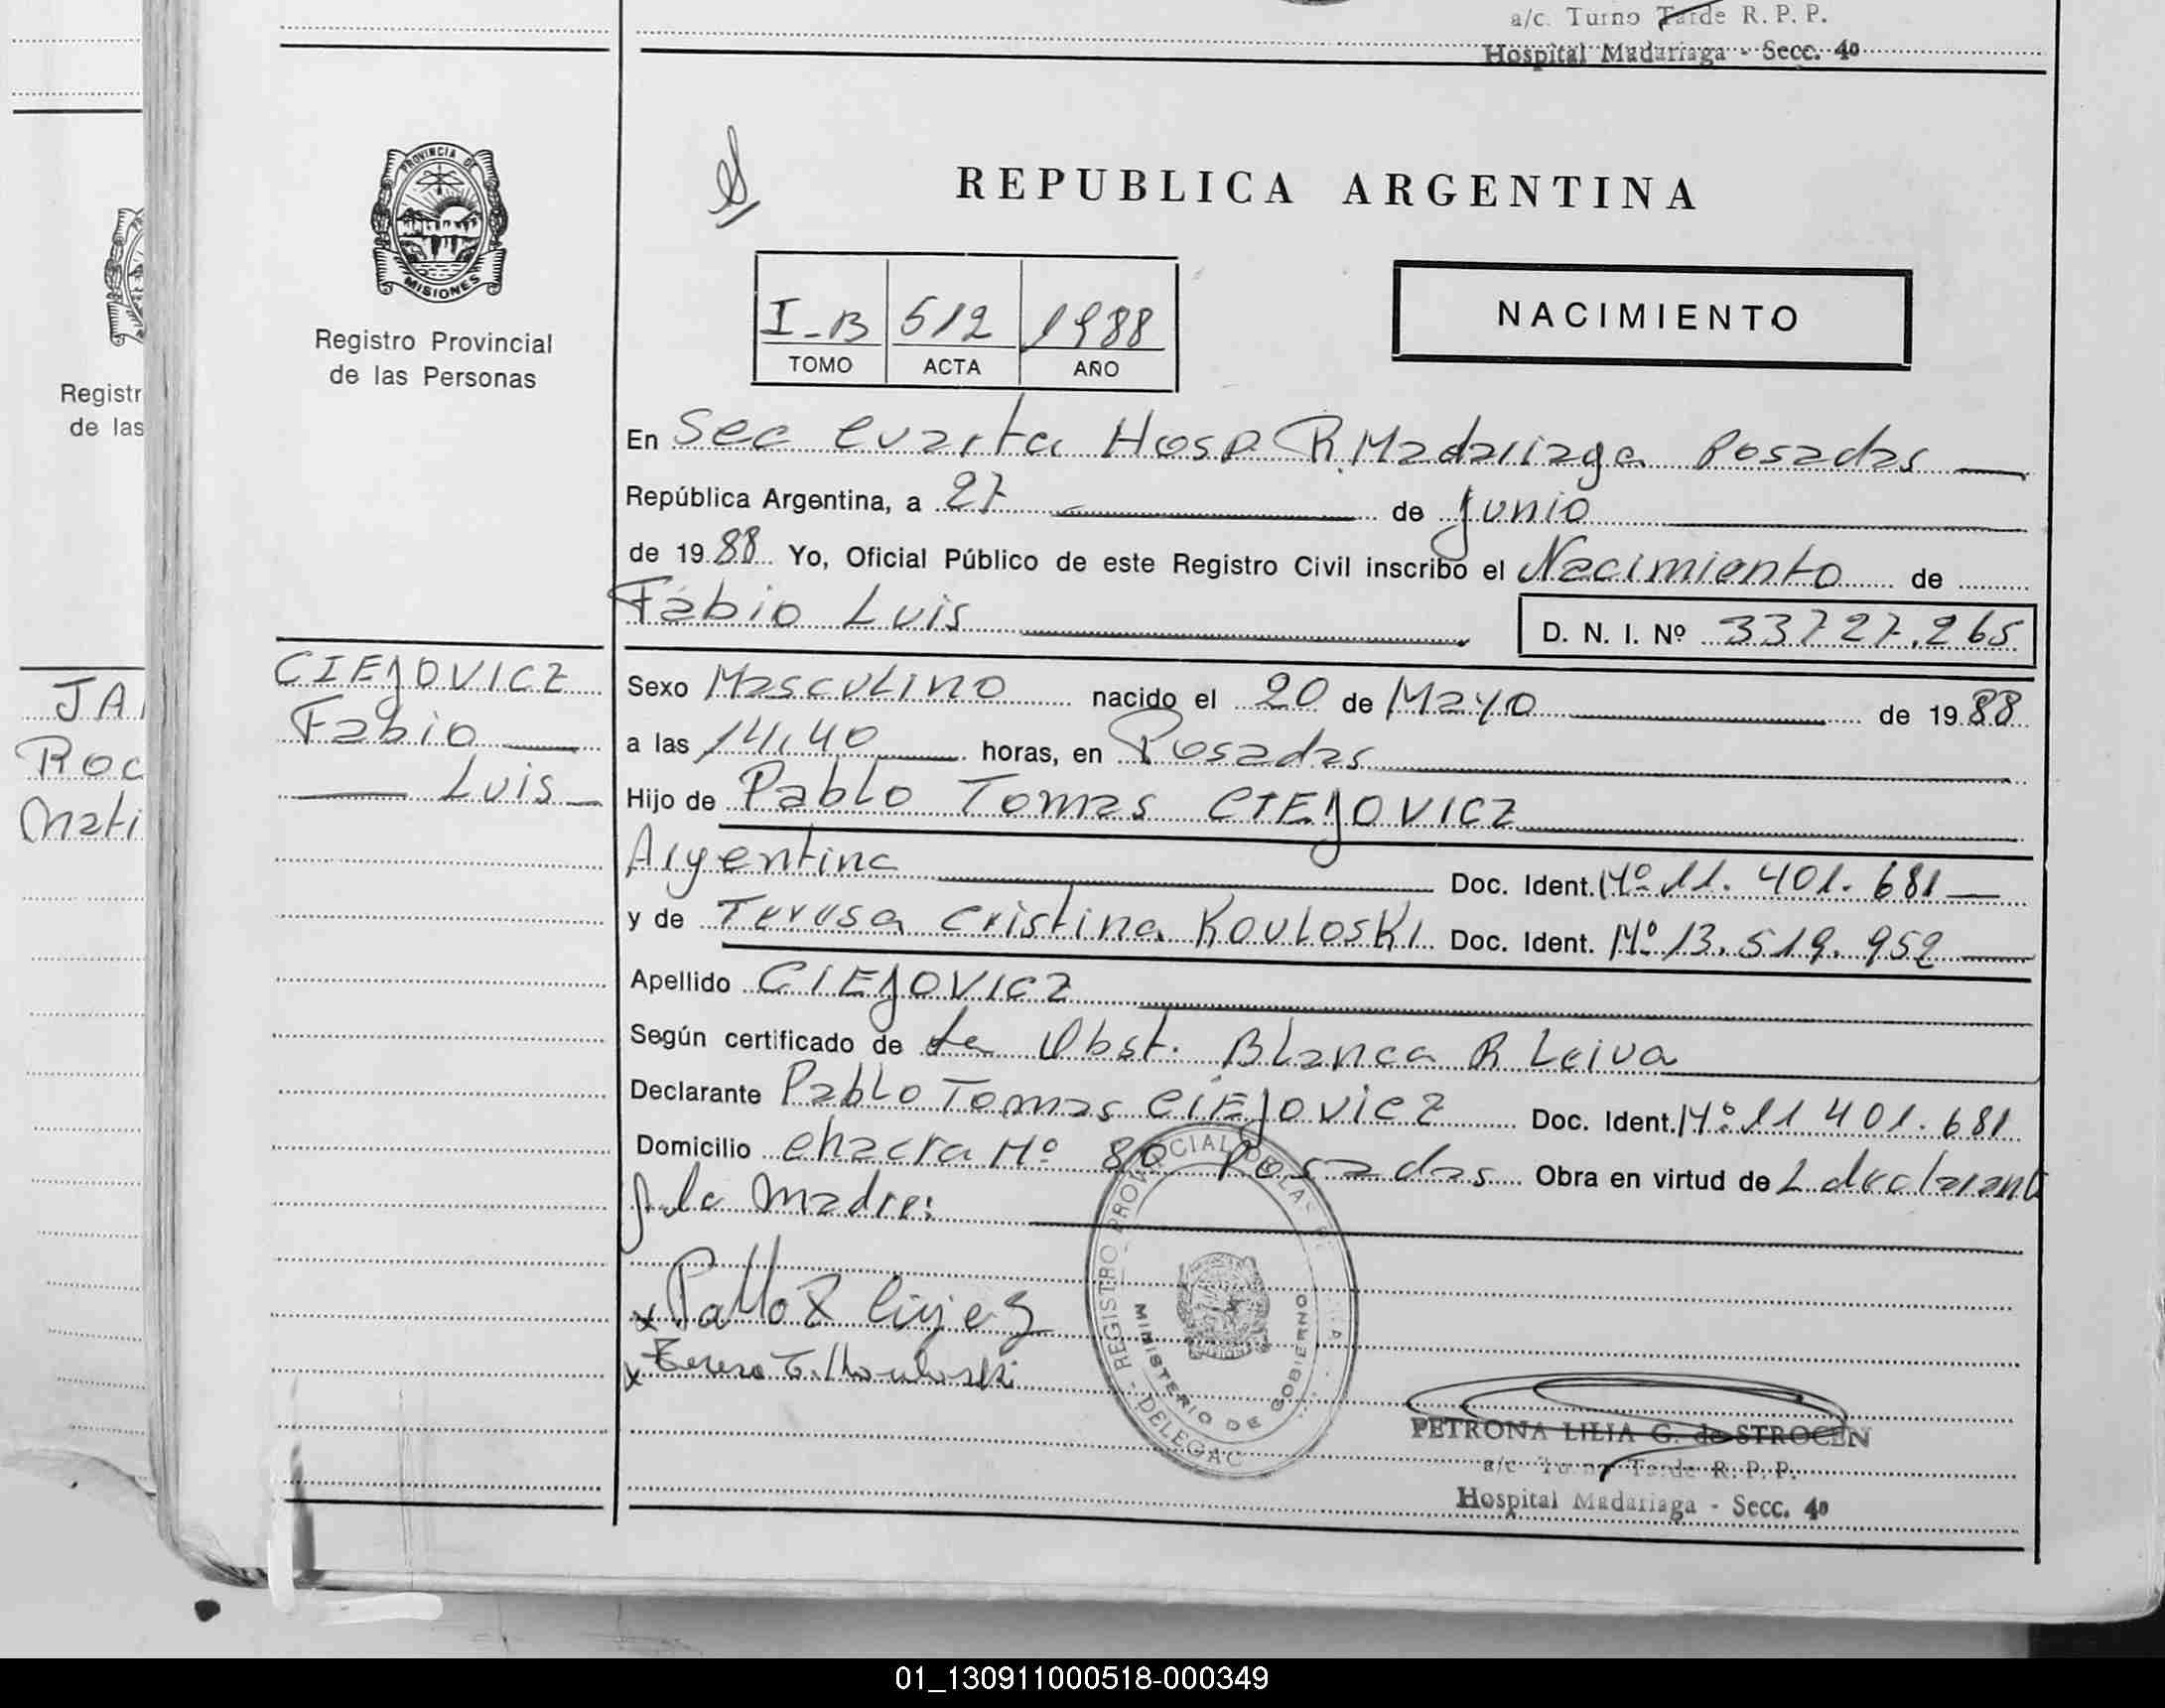 a/c. Turno Tarde R. P. P.
Hospital Madariaga - Secc. 4º
PROVINCIA DE
MISIONES
Registro Provincial
de las Personas
REPUBLICA ARGENTINA
NACIMIENTO
I-B 512 1988
TOMO ACTA AÑO
Registr
de las
En Sec Cuarta Hosp R. Madariaga Posadas
República Argentina, a 27 de Junio
de 1988 Yo, Oficial Público de este Registro Civil inscribo el Nacimiento de
Fabio Luis D. N. I. Nº 33727.265
CIEJOVICZ
Fabio
Luis
JA
Roc
Mati
Sexo Masculino nacido el 20 de Mayo de 1988
a las 14,40 horas, en Posadas
Hijo de Pablo Tomas CIEJOVICZ
Argentina Doc. Ident. Mº 11.401.681
y de Teresa Cristina KOULOSKI Doc. Ident. Mº 13.519.952
Apellido CIEJOVICZ
Según certificado de la Obst. Blanca R Leiva
Declarante Pablo Tomas CIEJOVICZ Doc. Ident. Mº 11 401.681
Domicilio Chacra Nº 80 Posadas Obra en virtud de L declarant
y la madre:
REGISTRO PROVINCIAL DE LAS
MINISTERIO DE GOBIERNO
DELEGAC
PETRONA LILIA G. de STROCEN
a/c Turno Tarde R. P. P.
Hospital Madariaga - Secc. 4º
01_130911000518-000349